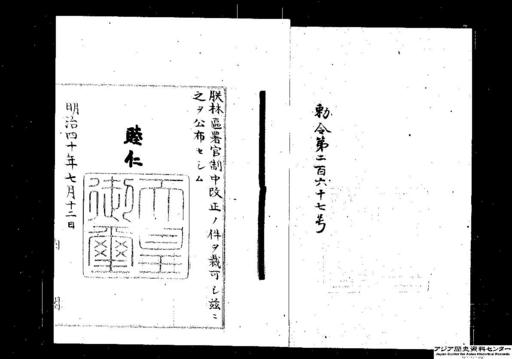 勅令第二百六十七号
朕林區署官制中改正ノ件ヲ裁可シ茲ニ
之ヲ公布セシム
睦仁
天皇御璽
明治四十年七月十二日
内閣
アジア歴史資料センター
Japan Center for Asian Historical Records